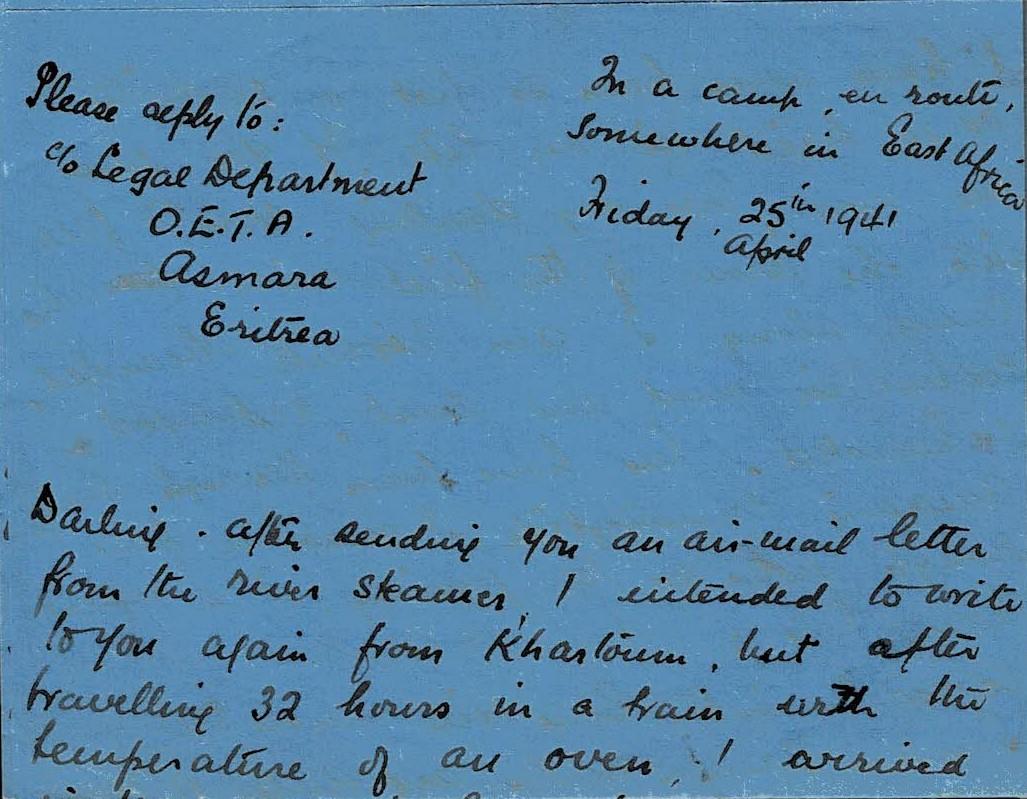 Please reply to:
c/o Legal Department
O.E.T.A.
Asmara
Eritrea
In a camp, en route,
Somewhere in East Africa
Friday, 25th 1941
April
Darling. After sending you an air-mail letter
from the river steamer, I intended to write
to you again from Khartoum, but after
travelling 32 hours in a train with the
temperature of an oven, I arrived